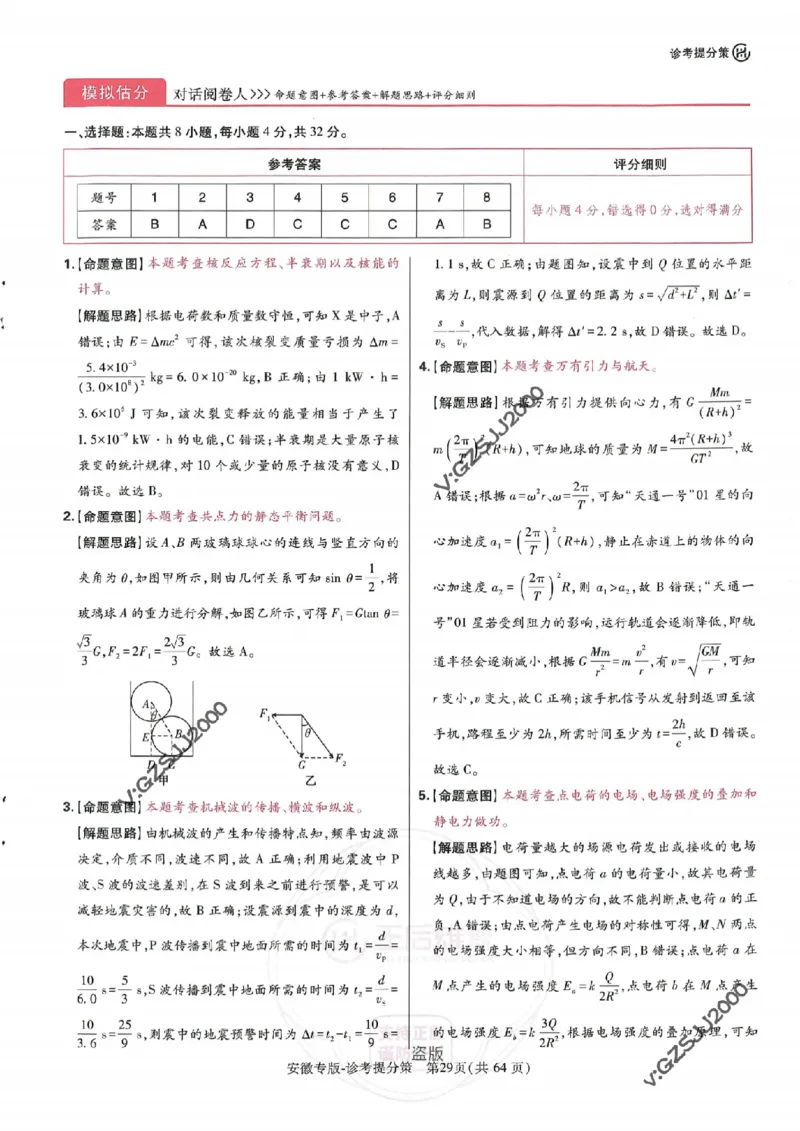 诊考提分策
模拟估分 对话阅卷人>>>命题意图+参考答案+解题思路+评分细则
一、选择题:本题共8小题,每小题4分,共32分。
参考答案 评分细则
题号 1 2 3 4 5 6 7 8
答案 B A D C C C A B
每小题4分,错选得0分,选对得满分
1.【命题意图】本题考查核反应方程、半衰期以及核能的
计算。
【解题思路】根据电荷数和质量数守恒,可知X是中子,A
错误;由 E=Δmc² 可得,该次核裂变质量亏损为 Δm=
5.4×10⁻³/(3.0×10⁸)² kg=6.0×10⁻²⁰ kg,B正确;由 1 kW·h=
3.6×10⁶ J 可知,该次裂变释放的能量相当于产生了
1.5×10⁻⁹ kW·h 的电能,C错误;半衰期是大量原子核
衰变的统计规律,对10个或少量的原子核没有意义,D
错误。故选B。
2.【命题意图】本题考查共点力的静态平衡问题。
【解题思路】设A、B两玻璃球球心的连线与竖直方向的
夹角为θ,如图甲所示,则由几何关系可知 sin θ=1/2,将
玻璃球A的重力进行分解,如图乙所示,可得 F₁=Gtan θ=
√3/3 G,F₂=2F₁=2√3/3 G。故选A。
A
θ
E B
D
甲
F₁
θ
G F₂
乙
3.【命题意图】本题考查机械波的传播、横波和纵波。
【解题思路】由机械波的产生和传播特点知,频率由波源
决定,介质不同,波速不同,故A正确;利用地震波中P
波、S波的波速差别,在S波到来之前进行预警,是可以
减轻地震灾害的,故B正确;设震源到震中的深度为d,
本次地震中,P波传播到震中地面所需的时间为 t₁=d/v_P=
10/6.0 s=5/3 s,S波传播到震中地面所需的时间为 t₂=d/v_S=
10/3.6 s=25/9 s,则震中的地震预警时间为 Δt=t₂-t₁=10/9 s=
1.1 s,故C正确;由题图知,设震中到Q位置的水平距
离为L,则震源到Q位置的距离为 s=√(d²+L²),则 Δt′=
s/v_S-s/v_P,代入数据,解得 Δt′=2.2 s,故D错误。故选D。
4.【命题意图】本题考查万有引力与航天。
【解题思路】根据万有引力提供向心力,有 G Mm/(R+h)²=
m(2π/T)²(R+h),可知地球的质量为 M=4π²(R+h)³/GT²,故
A错误;根据 a=ω²r、ω=2π/T,可知“天通一号”01星的向
心加速度 a₁=(2π/T)²(R+h),静止在赤道上的物体的向
心加速度 a₂=(2π/T)²R,则 a₁>a₂,故B错误;“天通一
号”01星若受到阻力的影响,运行轨道会逐渐降低,即轨
道半径会逐渐减小,根据 G Mm/r²=m v²/r,有 v=√(GM/r),可知
r变小,v变大,故C正确;该手机信号从发射到返回至该
手机,路程至少为2h,所需时间至少为 t=2h/c,故D错误。
故选C。
5.【命题意图】本题考查点电荷的电场、电场强度的叠加和
静电力做功。
【解题思路】电荷量越大的场源电荷发出或接收的电场
线越多,由题图可知,点电荷a的电荷量小,故其电荷量
为Q,由于不知道电场的方向,故不能判断点电荷a的正
负,A错误;由点电荷产生电场的对称性可得,M、N两点
的电场强度大小相等,但方向不同,B错误;点电荷a在
M点产生的电场强度 E_a=k Q/2R²,点电荷b在M点产生
的电场强度 E_b=k 3Q/2R²,根据电场强度的叠加原理,可知
V:GZSJJ2000
V:GZSJJ2000
V:GZSJJ2000
盗版
安徽专版-诊考提分策 第29页(共 64 页)